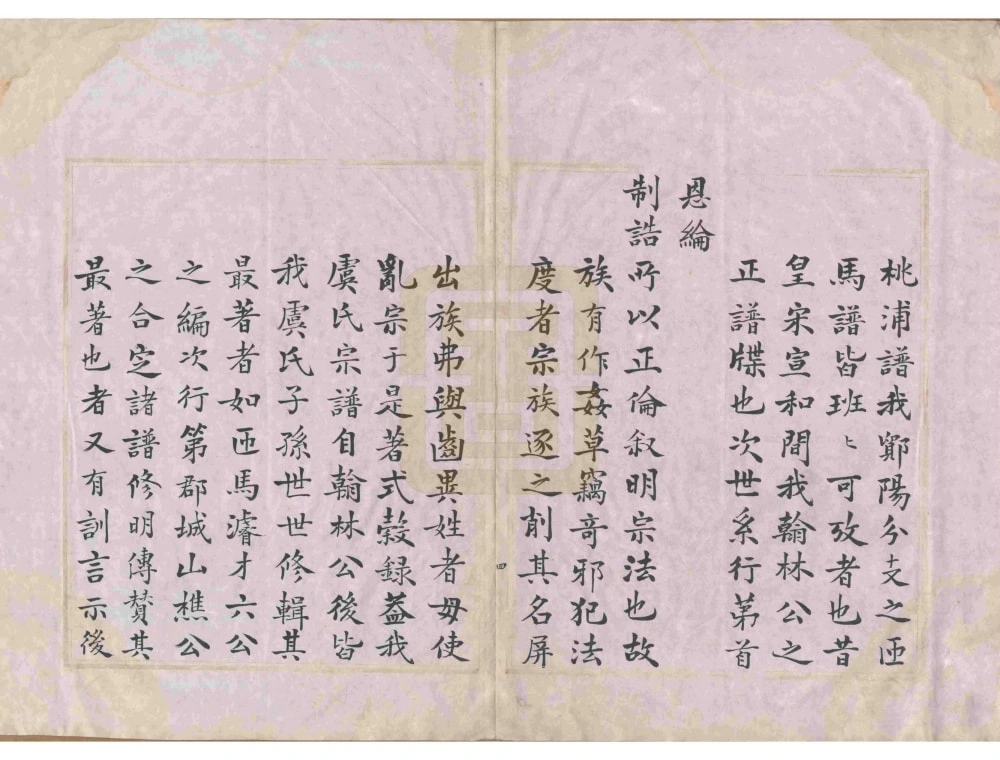 桃浦譜我鄞陽分支之匝
馬譜皆班〻可攷者也昔
皇宋宣和間我翰林公之
正譜牒也次世系行第首
恩綸
制誥所以正倫叙明宗法也故
族有作姦草竊奇邪犯法
度者宗族逐之削其名屏
四
出族弗與齒異姓者毋使
亂宗于是著式穀録葢我
虞氏宗譜自翰林公後皆
我虞氏子孫世世修輯其
最著者如匝馬濬才六公
之編次行第郡城山樵公
之合定諸譜修明傳贊其
最著也者又有訓言示後